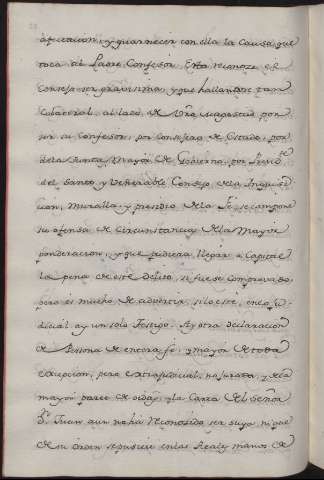 y guarnecer con ella la Causa, que
toca al Padre Confesor, Esta reconoze el
Consejo ser gravissima, y que hallandose tan
Colateral al lado de Vra Magestad por
ser su Confesor, por Consejero de Estado, por
dela Junta Mayor de Govierno, por
del Santo, y Venerable Consejo de la Inquisi
cion, Muralla, y presidio de la Fe, se compone
su ofensa de Circunstancias de la Mayor
ponderacion, y que pudiera llegar a Capital
la pena de este delito, si fuese Comprovado,
pero es mucho de advertir, si lo esta, en lo Ju
dicial ay un solo Testigo. Ay otra declaracion
de Persona de entera fe, y mayor de toda
excepcion, pero extrajudicial, no jurada, y de la
mayor parte de oydas, y la Carta del Señor
Dn. Juan aun no ha reconosido ser suya ni que
de su orden se pusiese en las Reales manos de